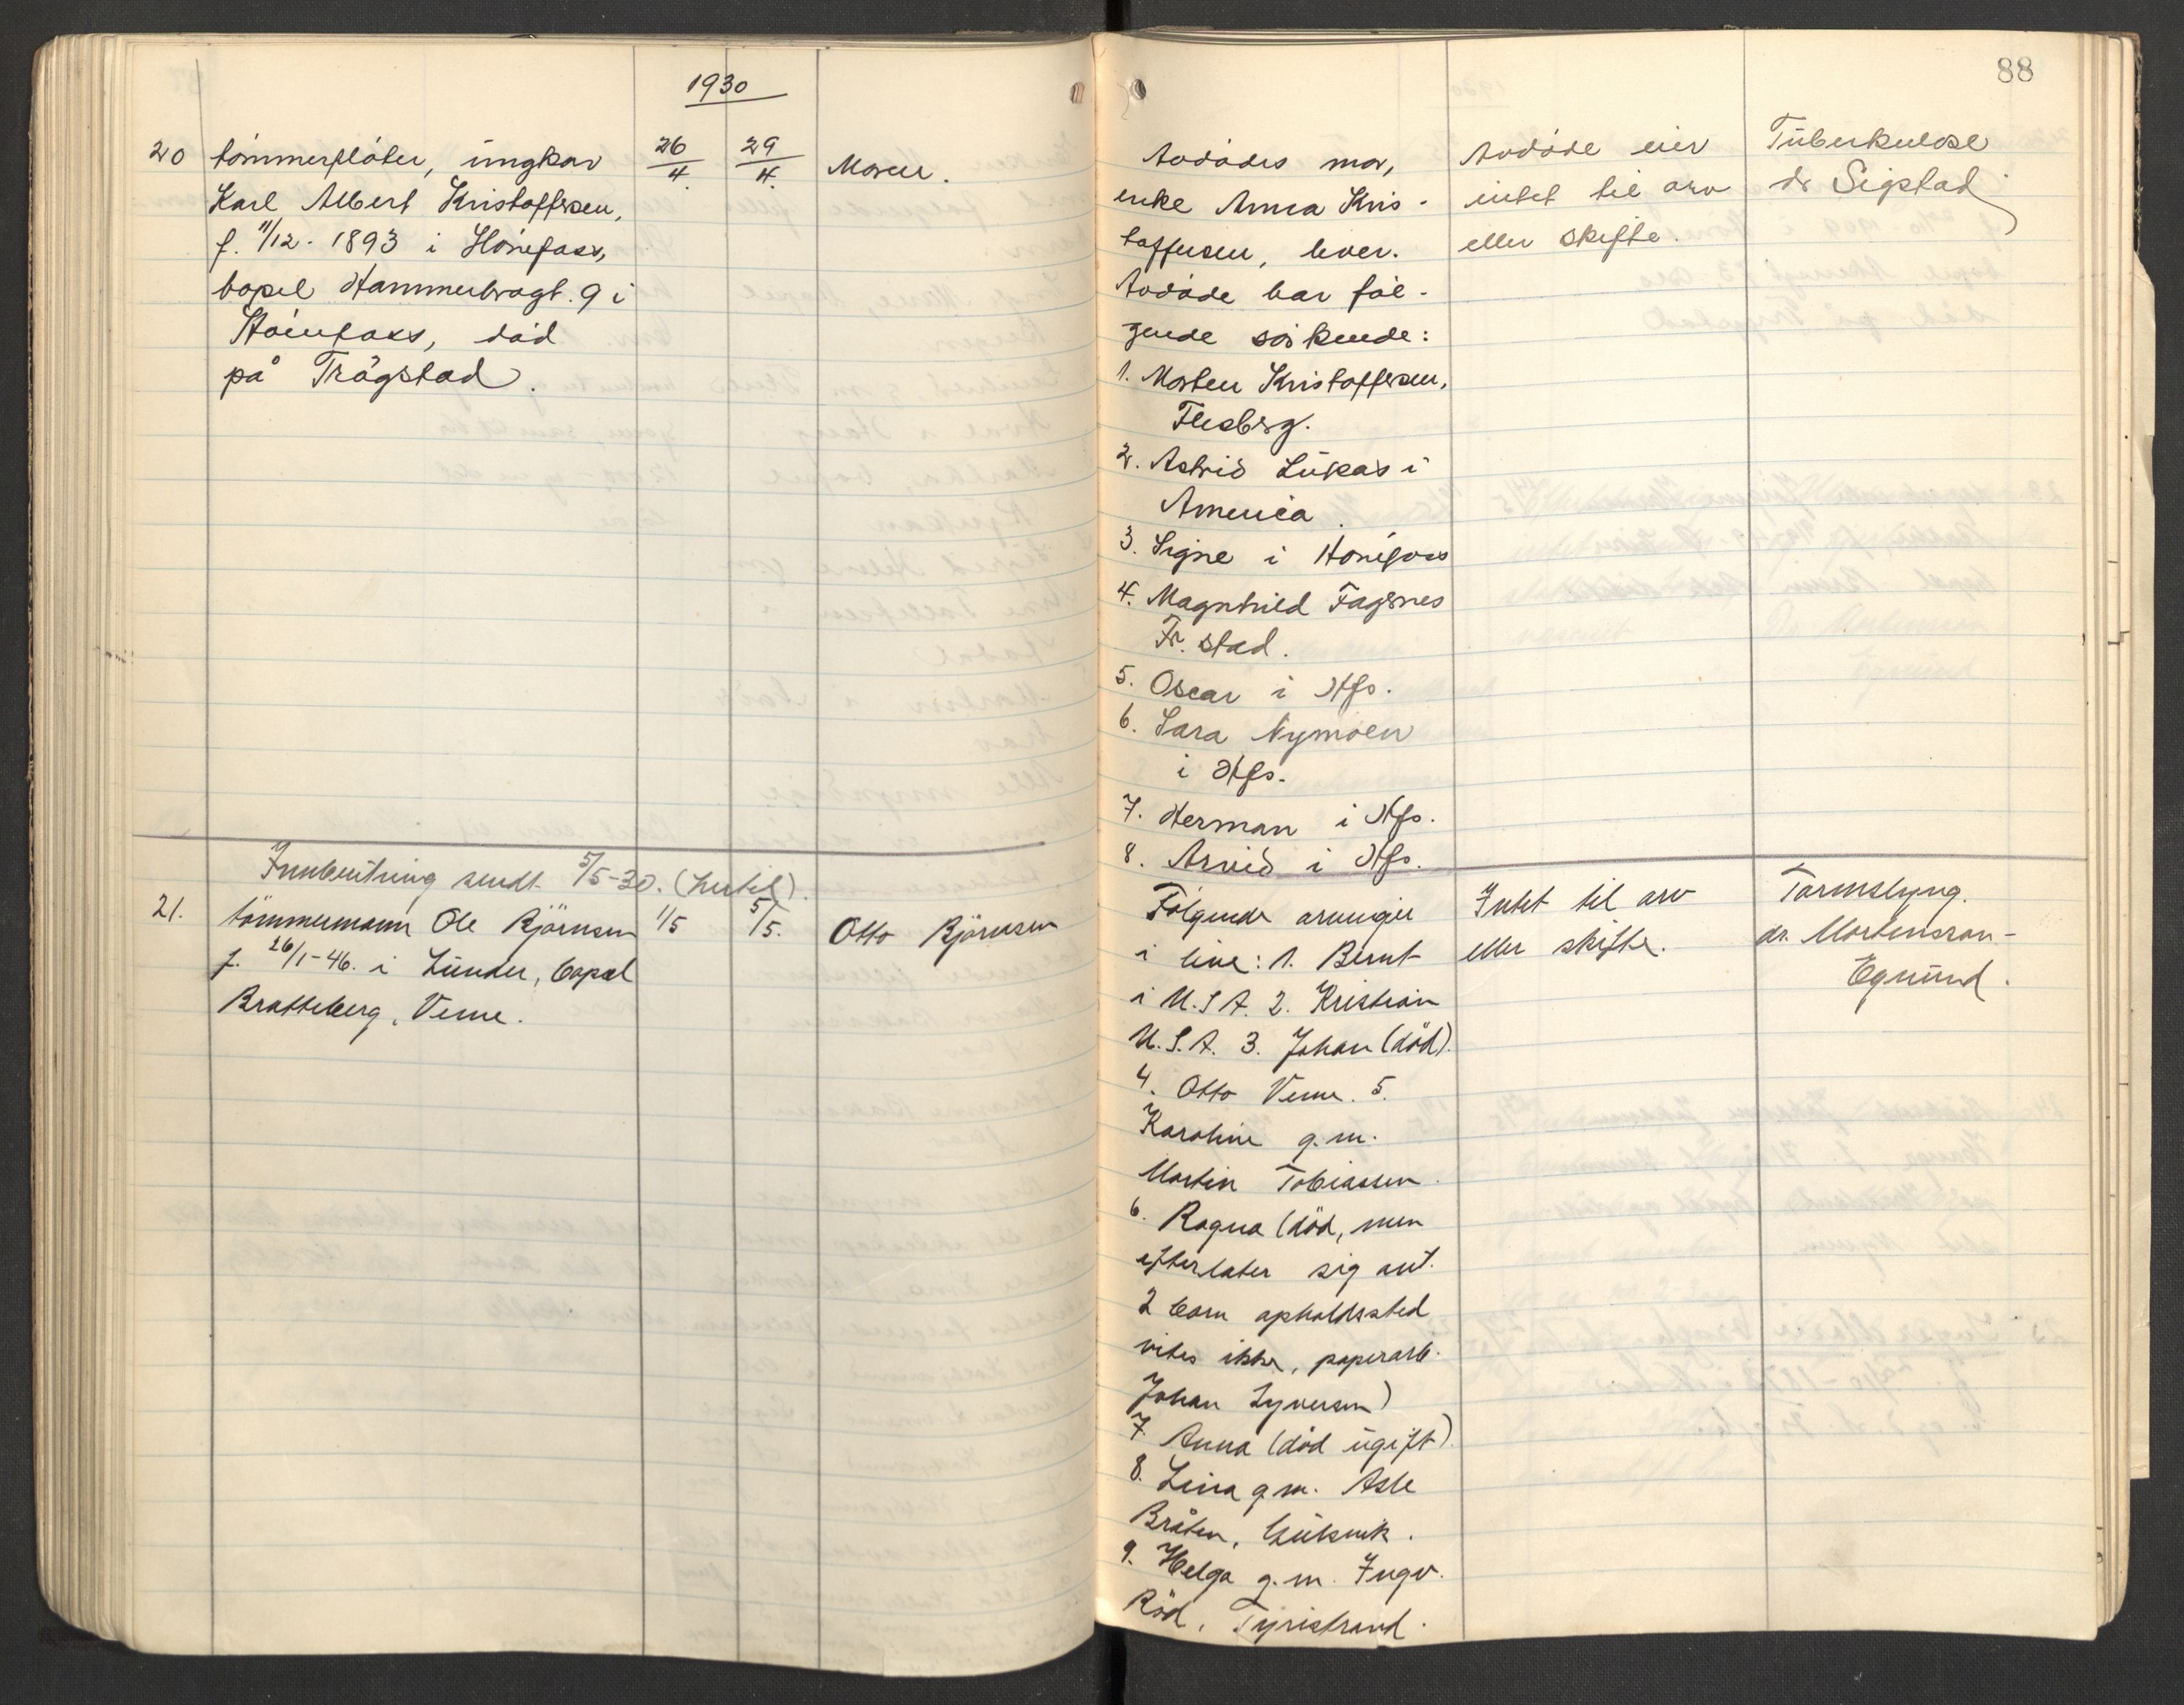 1930
88
20 tømmerfløter, ungkar
Karl Albert Kristoffersen,
f. 11/12-1893 i Hønefoss,
bopel Hammerbrogt. 9 i
Hønefoss, død
på Trøgstad.
26/4.
29/4.
Moren.
Avdødes mor,
enke Anna Kris-
toffersen, lever.
Avdøde har føl-
gende søskende:
1. Morten Kristoffersen,
Flesberg.
2. Astrid Lukas i
America.
3. Signe i Hønefoss
4. Magnhild Fagernes
Fr. stad.
5. Oscar i Hfs.
6. Sara Nymoen
i Hfs.
7. Herman i Hfs.
8. Arvid i Hfs.
Avdøde eier
intet til arv
eller skifte.
Tuberkulose
dr Sigstad
Innberetning sendt 5/5-30. (Intet).
21. tømmermann Ole Bjørnsen
f. 26/1-46. i Lunder, bopel
Bratteberg, Veme.
1/5
5/5.
Otto Bjørnsen
Følgende arvinger
i live: 1. Bernt
i U.S.A. 2. Kristian
U.S.A. 3. Johan (død).
4. Otto Veme. 5.
Karoline g.m.
Martin Tobiassen.
6. Ragna (død, men
efterlater sig ant.
2 barn opholdssted
vites ikke, papirarb.
Johan Syversen)
7. Anna (død ugift).
8. Lina g.m. Asle
Bråten,
9. Helga g.m. Ingv.
Rød, Tyristrand.
Intet til arv
eller skifte.
Tarmslyng.
dr. Mortensson-
Egnund.